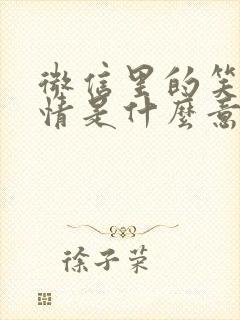 微信里的笑
情是什麼意
徐子荣